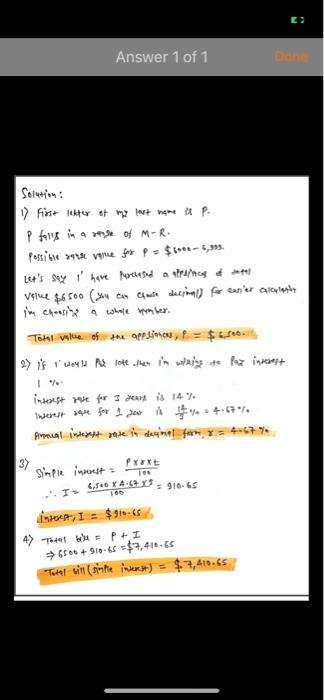 Answer 1 of 1
Done
Solution:
1) First letter of my last name is P.
P falls in a range of M-R.
Possible range value for P = $6000-6,999.
Let's say I have purchased a appliances of total
value $6500 (you can choose decimal) for easier calculation
I'm choosing a whole number.
Total value of the appliances, P = $6,500.
2) If I would Pay late then I'm willing to Pay interest
1 %.
interest rate for 3 years is 14%.
Interest rate for 1 year is 14/3 % = 4.67%
Annual interest rate in decimal form, r = 4.67%
3) Simple interest = P×r×t / 100
∴ I = 6,500 × 4.67 × 3 / 100 = 910.65
Interest, I = $910.65
4) Total bill = P + I
⇒ 6500 + 910.65 = $7,410.65
Total bill (simple interest) = $7,410.65